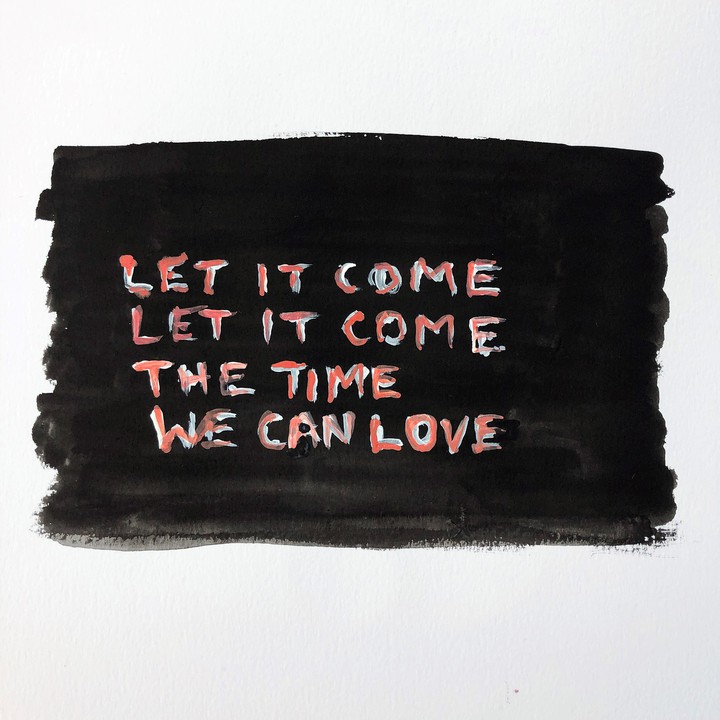 LET IT COME
LET IT COME
THE TIME
WE CAN LOVE